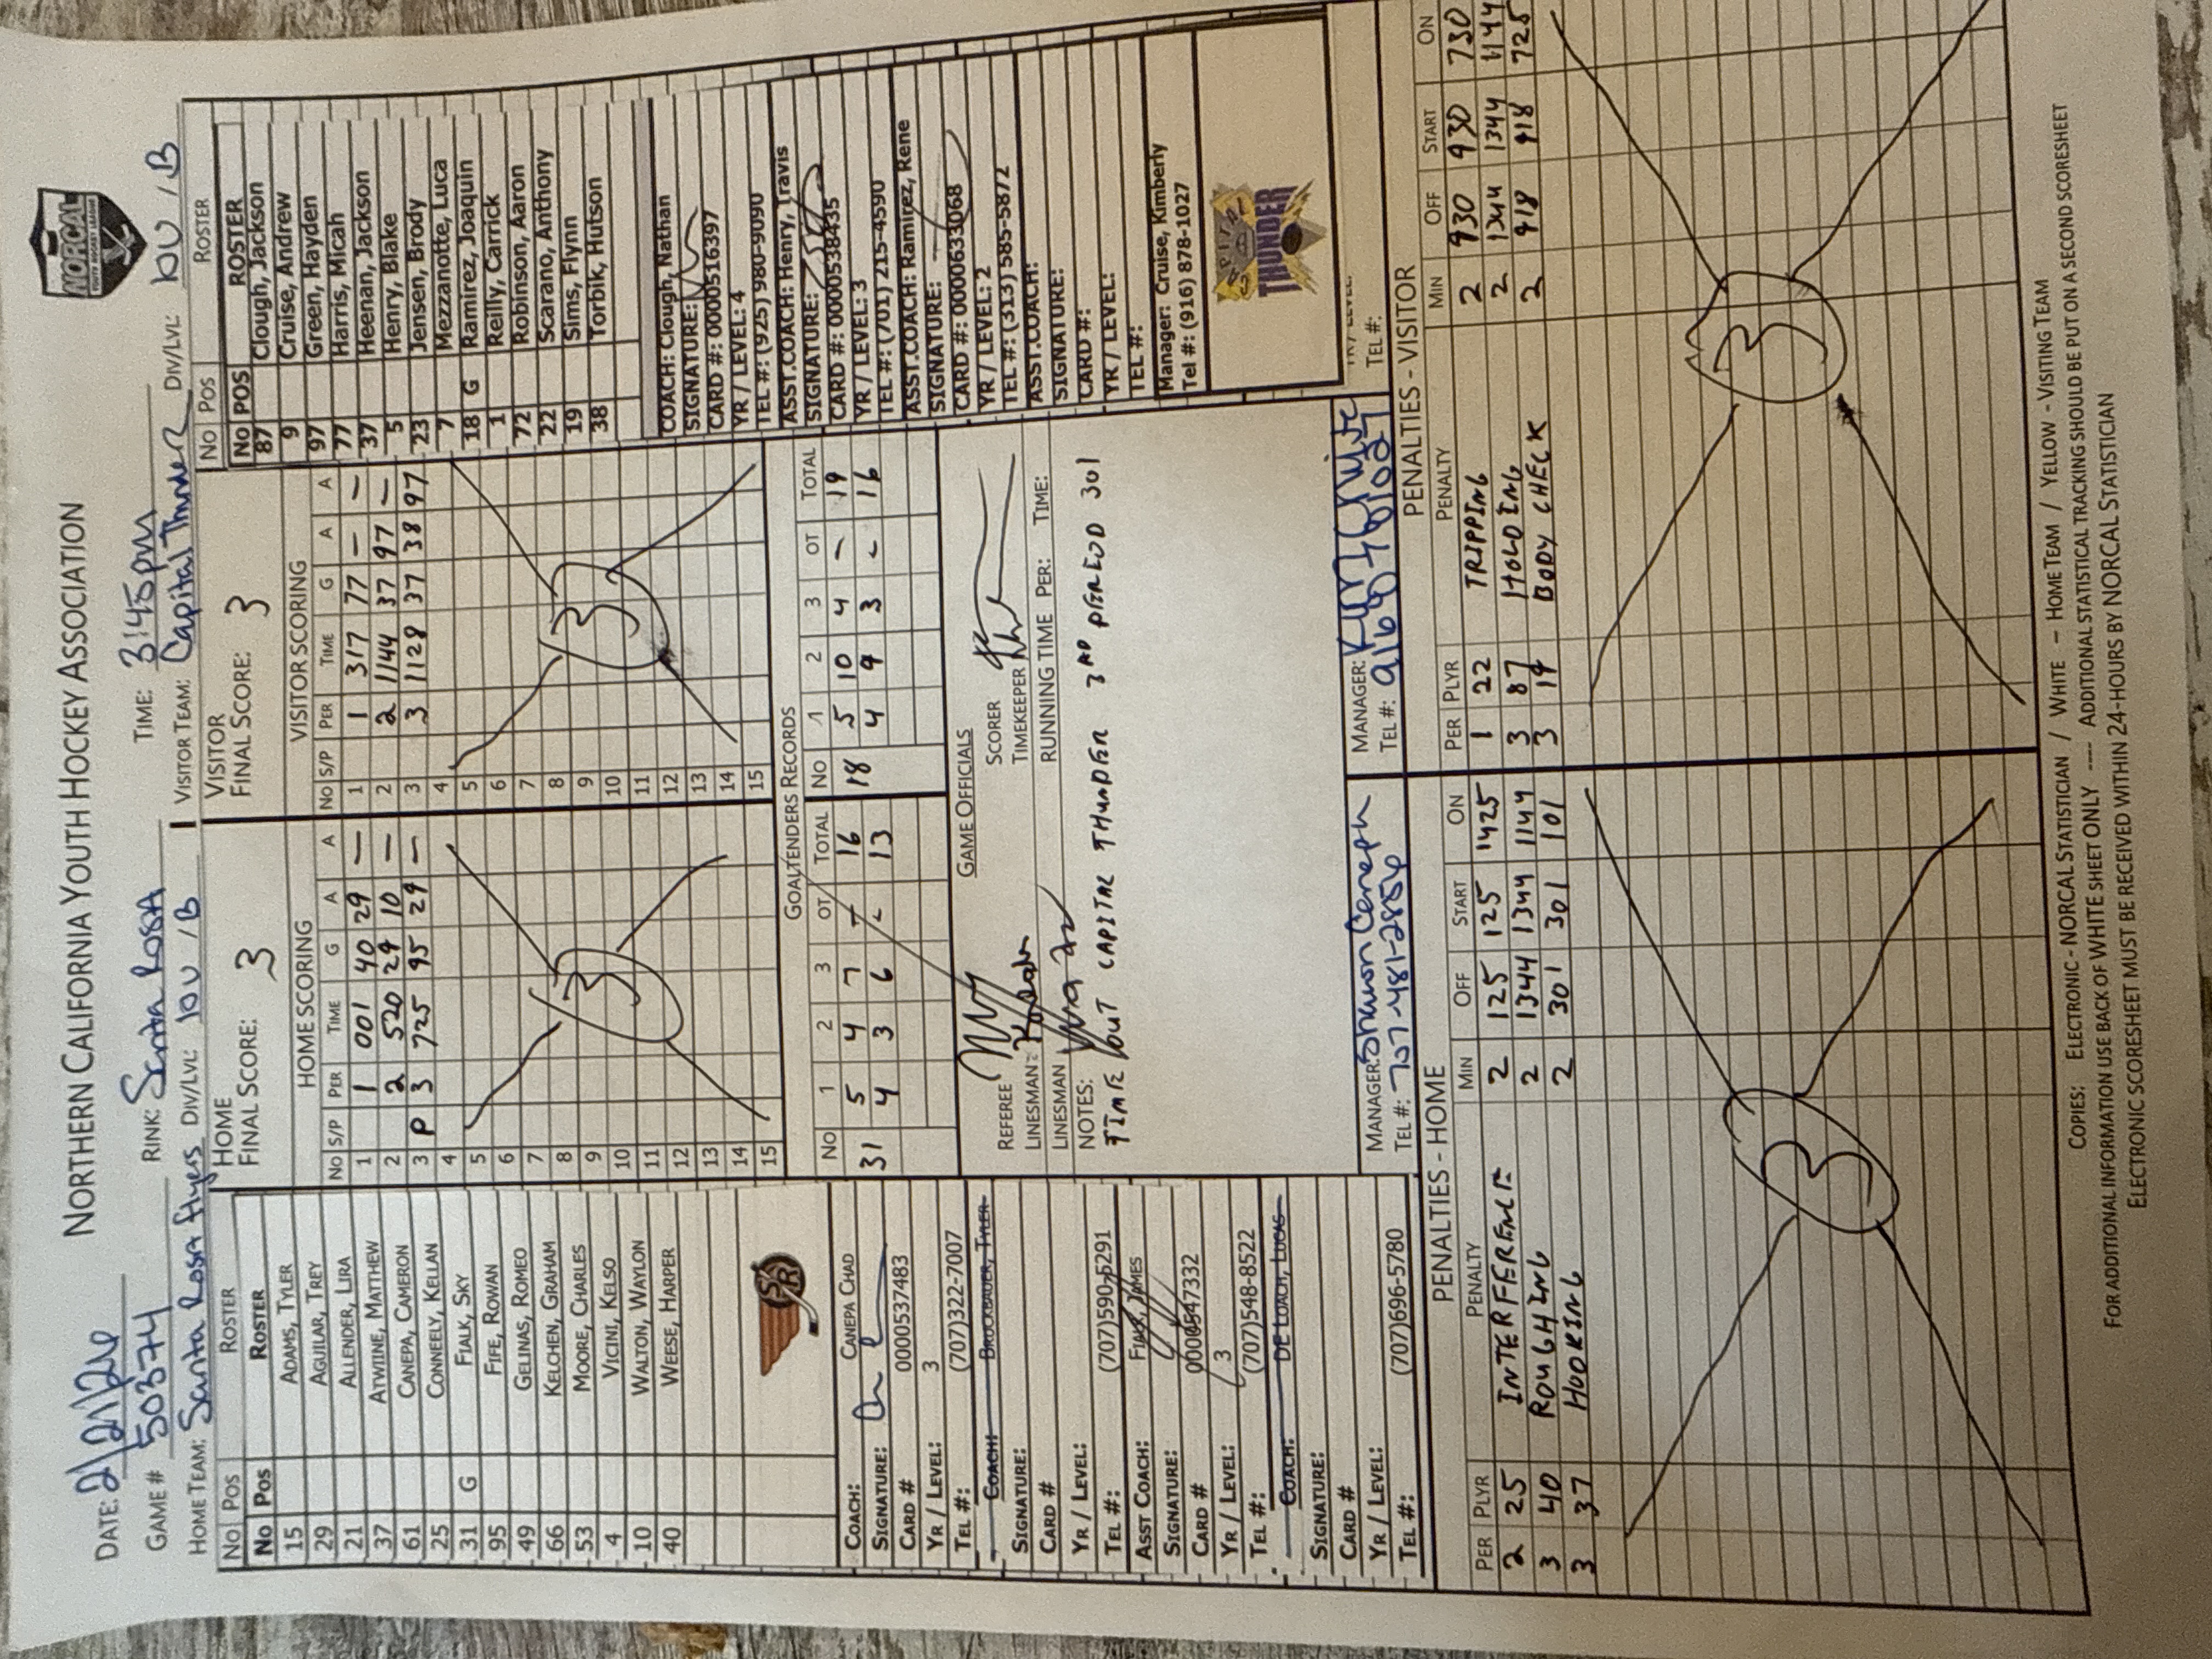 NORTHERN CALIFORNIA YOUTH HOCKEY ASSOCIATION
NORCAL
YOUTH HOCKEY LEAGUE
DATE: 2/21/26
GAME # 50374 RINK: Santa Rosa TIME: 3:45pm
HOME TEAM: Santa Rosa Flyers DIV/LVL: 10U / B VISITOR TEAM: Capital Thunder DIV/LVL: 10U / B
NO POS ROSTER
NO POS ROSTER
15 ADAMS, TYLER
29 AGUILAR, TREY
21 ALLENDER, LIRA
37 ATWINE, MATTHEW
61 CANEPA, CAMERON
25 CONNEELY, KELLAN
31 G FIALK, SKY
95 FIFE, ROWAN
49 GELINAS, ROMEO
66 KELCHEN, GRAHAM
53 MOORE, CHARLES
4 VICINI, KELSO
10 WALTON, WAYLON
40 WEESE, HARPER
SR
COACH: CANEPA CHAD
SIGNATURE:
CARD # 0000537483
YR / LEVEL: 3
TEL #: (707)322-7007
COACH: BRUCKBAUER, TYLER
SIGNATURE:
CARD #
YR / LEVEL:
TEL #: (707)590-5291
ASST COACH: FIALK, JAMES
SIGNATURE:
CARD # 0000547332
YR / LEVEL: 3
TEL #: (707)548-8522
COACH: DE LOACH, LUCAS
SIGNATURE:
CARD #
YR / LEVEL:
TEL #: (707)696-5780
HOME
FINAL SCORE: 3
HOME SCORING
NO S/P PER TIME G A A
1 1 001 40 29 —
2 2 520 29 10 —
3 P 3 725 95 29 —
4
5
6
7
8
9
10
11
12
13
14
15
3
VISITOR
FINAL SCORE: 3
VISITOR SCORING
NO S/P PER TIME G A A
1 1 317 77 — —
2 2 1144 37 97 —
3 3 1128 37 38 97
4
5
6
7
8
9
10
11
12
13
14
15
3
GOALTENDERS RECORDS
NO 1 2 3 OT TOTAL NO 1 2 3 OT TOTAL
31 5 4 7 - 16 18 5 10 4 - 19
4 3 6 - 13 4 9 3 - 16
GAME OFFICIALS
REFEREE SCORER
LINESMAN TIMEKEEPER
LINESMAN RUNNING TIME PER: TIME:
NOTES:
TIME OUT CAPITAL THUNDER 3RD PERIOD 301
MANAGER: Shannon Canepa
TEL #: 707-481-2856
MANAGER:
TEL #: 916 878 1027
NO POS ROSTER
NO POS ROSTER
87 Clough, Jackson
9 Cruise, Andrew
97 Green, Hayden
77 Harris, Micah
37 Heenan, Jackson
5 Henry, Blake
23 Jensen, Brody
7 Mezzanotte, Luca
18 G Ramirez, Joaquin
1 Reilly, Carrick
72 Robinson, Aaron
22 Scarano, Anthony
19 Sims, Flynn
38 Torbik, Hutson
COACH: Clough, Nathan
SIGNATURE:
CARD #: 0000516397
YR / LEVEL: 4
TEL #: (925) 980-9090
ASST.COACH: Henry, Travis
SIGNATURE:
CARD #: 0000538435
YR / LEVEL: 3
TEL #: (701) 215-4590
ASST.COACH: Ramirez, Rene
SIGNATURE:
CARD #: 0000633068
YR / LEVEL: 2
TEL #: (313) 585-5872
ASST.COACH:
SIGNATURE:
CARD #:
YR / LEVEL:
TEL #:
Manager: Cruise, Kimberly
Tel #: (916) 878-1027
CAPITAL
THUNDER
YR / LEVEL:
TEL #:
PENALTIES - HOME
PER PLYR PENALTY MIN OFF START ON
2 25 INTERFERENCE 2 125 125 1425
3 40 ROUGHING 2 1344 1344 1144
3 37 HOOKING 2 301 301 101
3
PENALTIES - VISITOR
PER PLYR PENALTY MIN OFF START ON
1 22 TRIPPING 2 930 930 730
3 87 HOLDING 2 1344 1344 1144
3 19 BODY CHECK 2 918 918 725
3
COPIES: ELECTRONIC - NORCAL STATISTICIAN / WHITE – HOME TEAM / YELLOW - VISITING TEAM
FOR ADDITIONAL INFORMATION USE BACK OF WHITE SHEET ONLY ---- ADDITIONAL STATISTICAL TRACKING SHOULD BE PUT ON A SECOND SCORESHEET
ELECTRONIC SCORESHEET MUST BE RECEIVED WITHIN 24-HOURS BY NORCAL STATISTICIAN